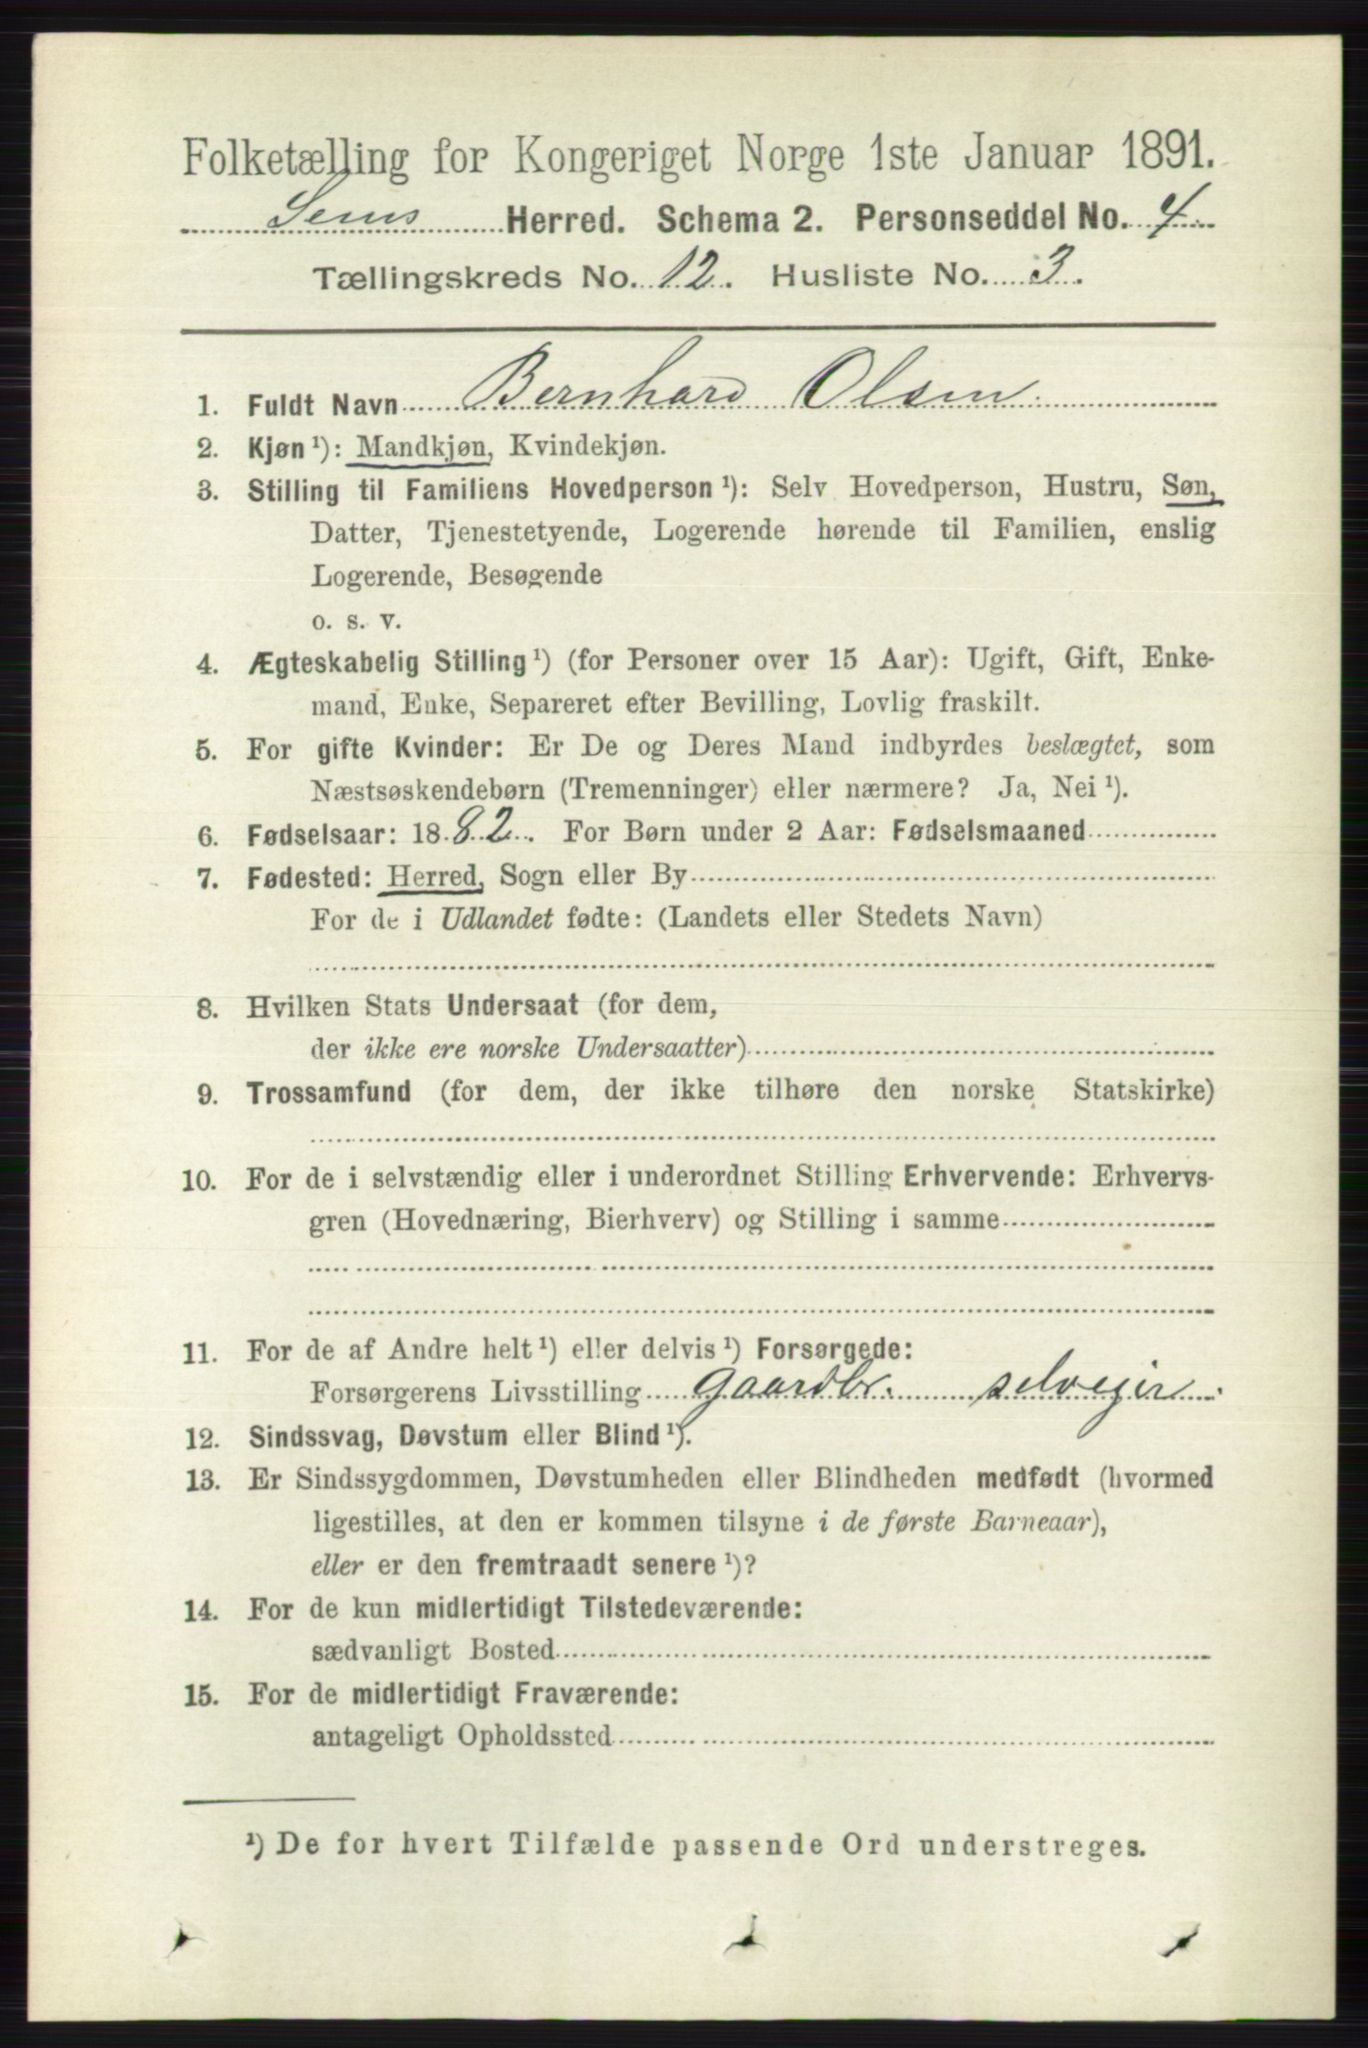 Folketælling for Kongeriget Norge 1ste Januar 1891.
Sems Herred. Schema 2. Personseddel No. 4
Tællingskreds No. 12. Husliste No. 3.
1. Fuldt Navn Bernhard Olsen
2. Kjøn ¹): Mandkjøn, Kvindekjøn.
3. Stilling til Familiens Hovedperson ¹): Selv Hovedperson, Hustru, Søn,
Datter, Tjenestetyende, Logerende hørende til Familien, enslig
Logerende, Besøgende
o. s. v.
4. Ægteskabelig Stilling ¹) (for Personer over 15 Aar): Ugift, Gift, Enke-
mand, Enke, Separeret efter Bevilling, Lovlig fraskilt.
5. For gifte Kvinder: Er De og Deres Mand indbyrdes beslægtet, som
Næstsøskendebørn (Tremenninger) eller nærmere? Ja, Nei ¹).
6. Fødselsaar: 1882. For Børn under 2 Aar: Fødselsmaaned
7. Fødested: Herred, Sogn eller By
For de i Udlandet fødte: (Landets eller Stedets Navn)
8. Hvilken Stats Undersaat (for dem,
der ikke ere norske Undersaatter)
9. Trossamfund (for dem, der ikke tilhøre den norske Statskirke)
10. For de i selvstændig eller i underordnet Stilling Erhvervende: Erhvervs-
gren (Hovednæring, Bierhverv) og Stilling i samme
11. For de af Andre helt ¹) eller delvis ¹) Forsørgede:
Forsørgerens Livsstilling Gaardbr. selveier.
12. Sindssvag, Døvstum eller Blind ¹).
13. Er Sindssygdommen, Døvstumheden eller Blindheden medfødt (hvormed
ligestilles, at den er kommen tilsyne i de første Barneaar),
eller er den fremtraadt senere ¹)?
14. For de kun midlertidigt Tilstedeværende:
sædvanligt Bosted
15. For de midlertidigt Fraværende:
antageligt Opholdssted
¹) De for hvert Tilfælde passende Ord understreges.